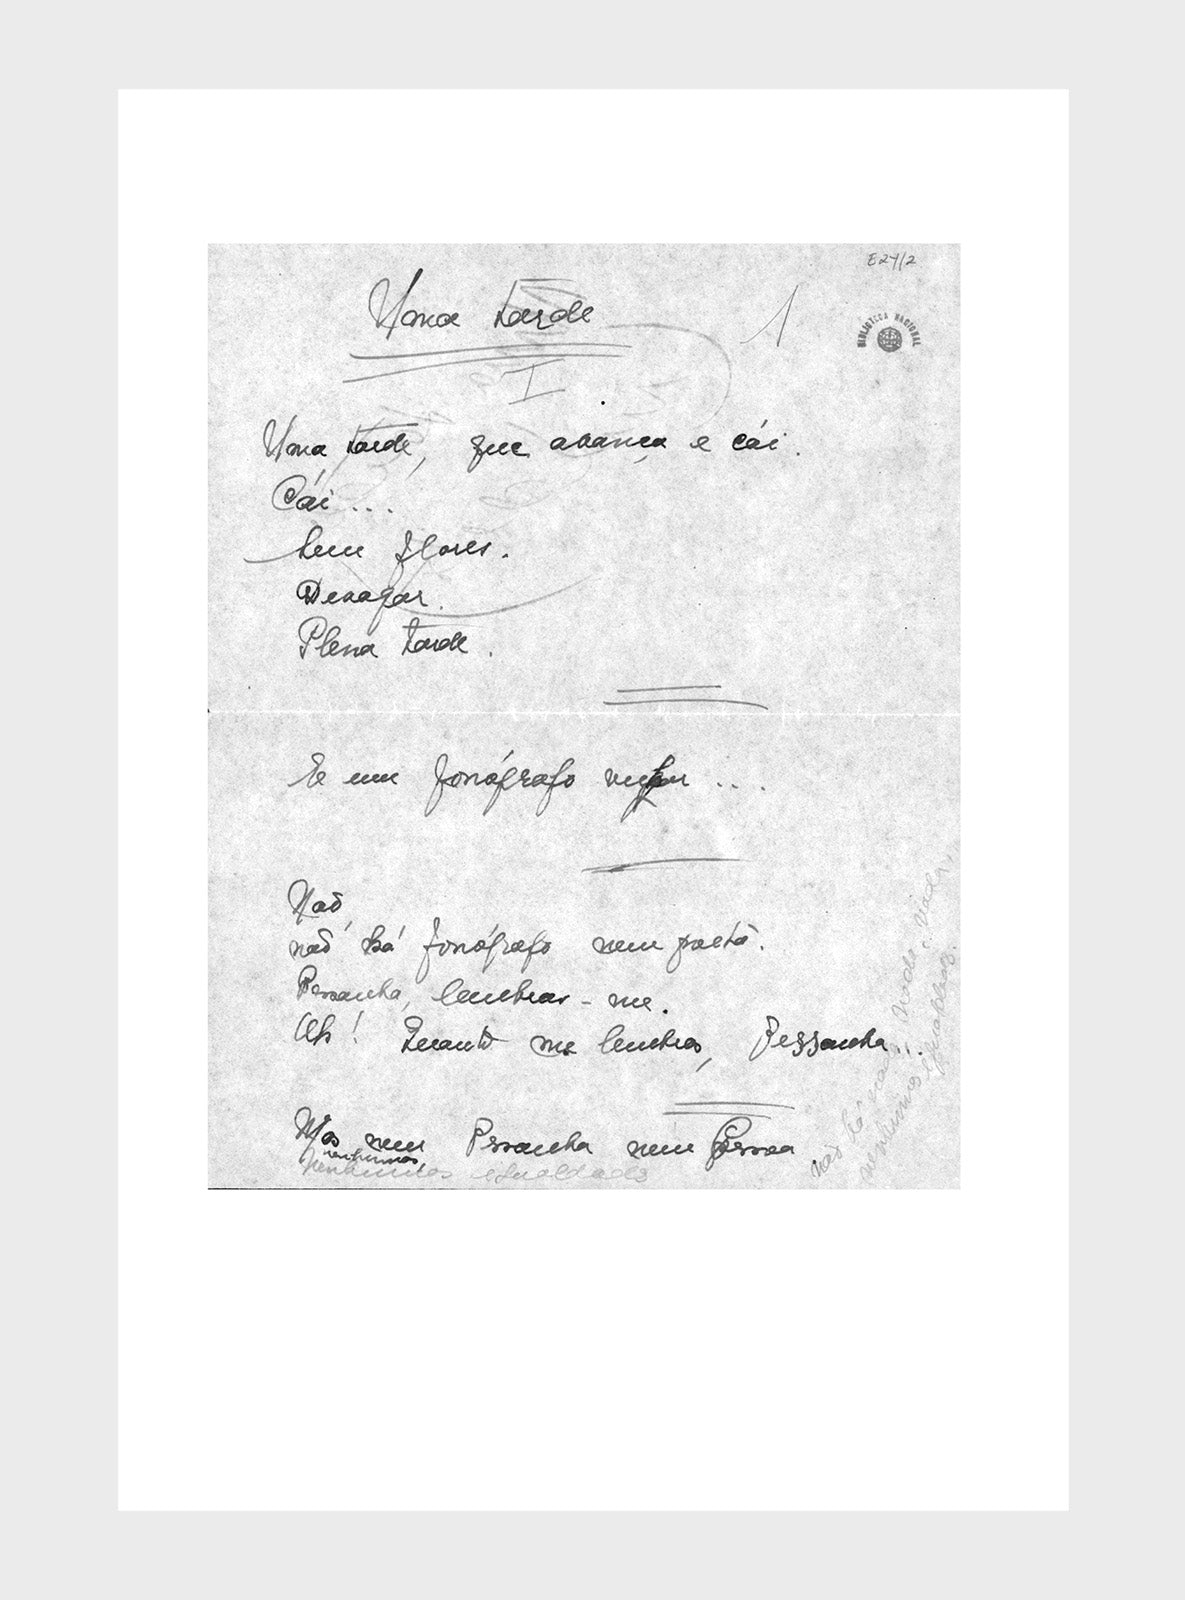 E24/2
Uma tarde
1
BIBLIOTECA NACIONAL
I
Uma tarde, que avança e cái.
Cái...
Sem flores.
Devagar.
Plena tarde.
E um fonógrafo
Não,
não há fonógrafo nem poeta.
Pessanha, lembras-me.
Ah! Quanto me lembras, Pessanha...
Mas nem Pessanha nem Pessoa
nenhumas
nenhumas igualdades
não há nada, nada,
nenhumas igualdades.